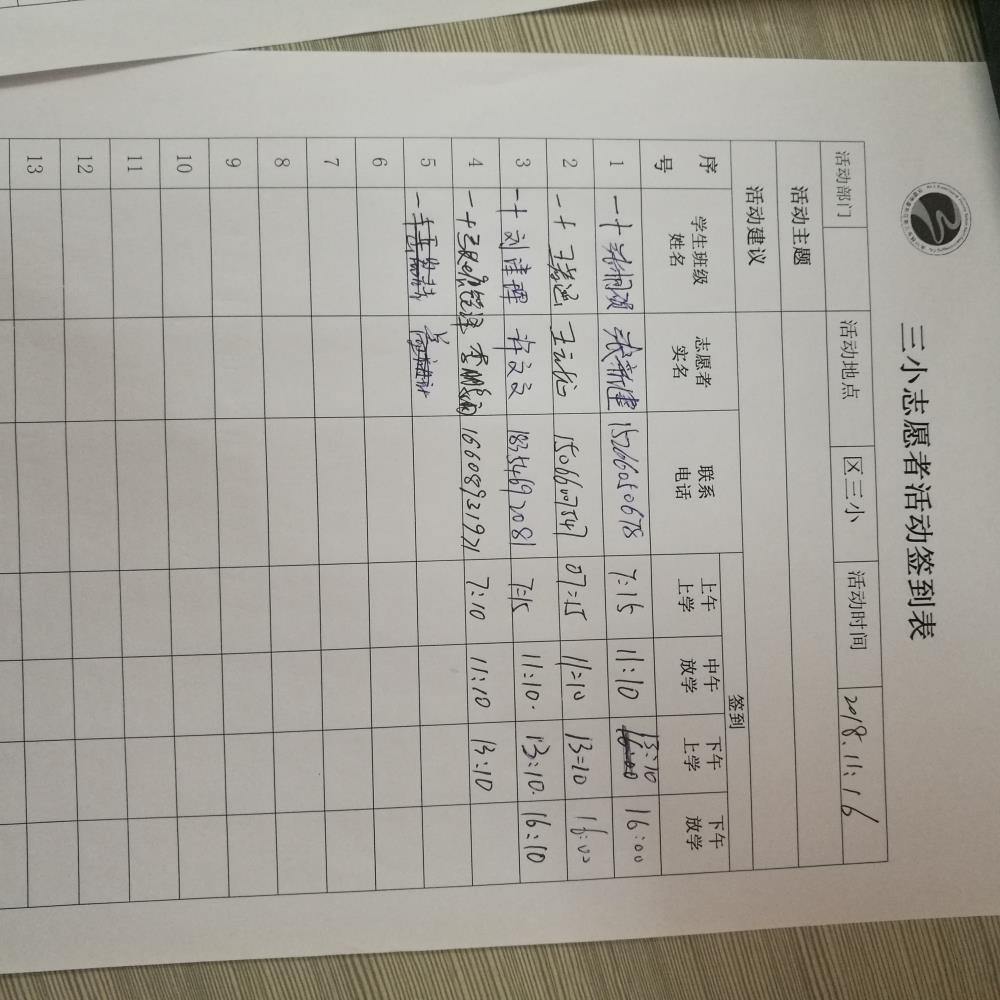 三小志愿者活动签到表
活动部门 活动地点 区三小 活动时间 2018.11.16
活动主题
活动建议
签到
序号 学生班级姓名 志愿者实名 联系电话 上午上学 中午放学 下午上学 下午放学
1 一十 15266050678 7:15 11:10 13:10 16:00
2 一十 王 王 07:15 11:10 13:10 16:00
3 一十 刘 许文文 18354692081 7:15 11:10. 13:10. 16:10
4 一十 李鹏 16608931971 7:10 11:10 13:10
5
6
7
8
9
10
11
12
13